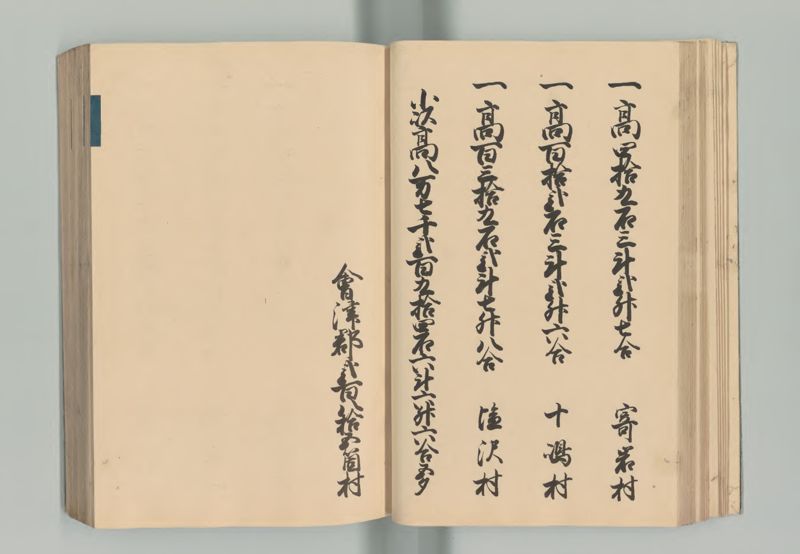 一高四拾九石三斗弐升七合 寄岩村
一高百拾弐石三斗弐升六合 十嶋村
一高百三拾九石弐斗七升八合 塩沢村
小以高八万七千弐百九拾四石六斗六升六合
會津郡弐百八拾箇村